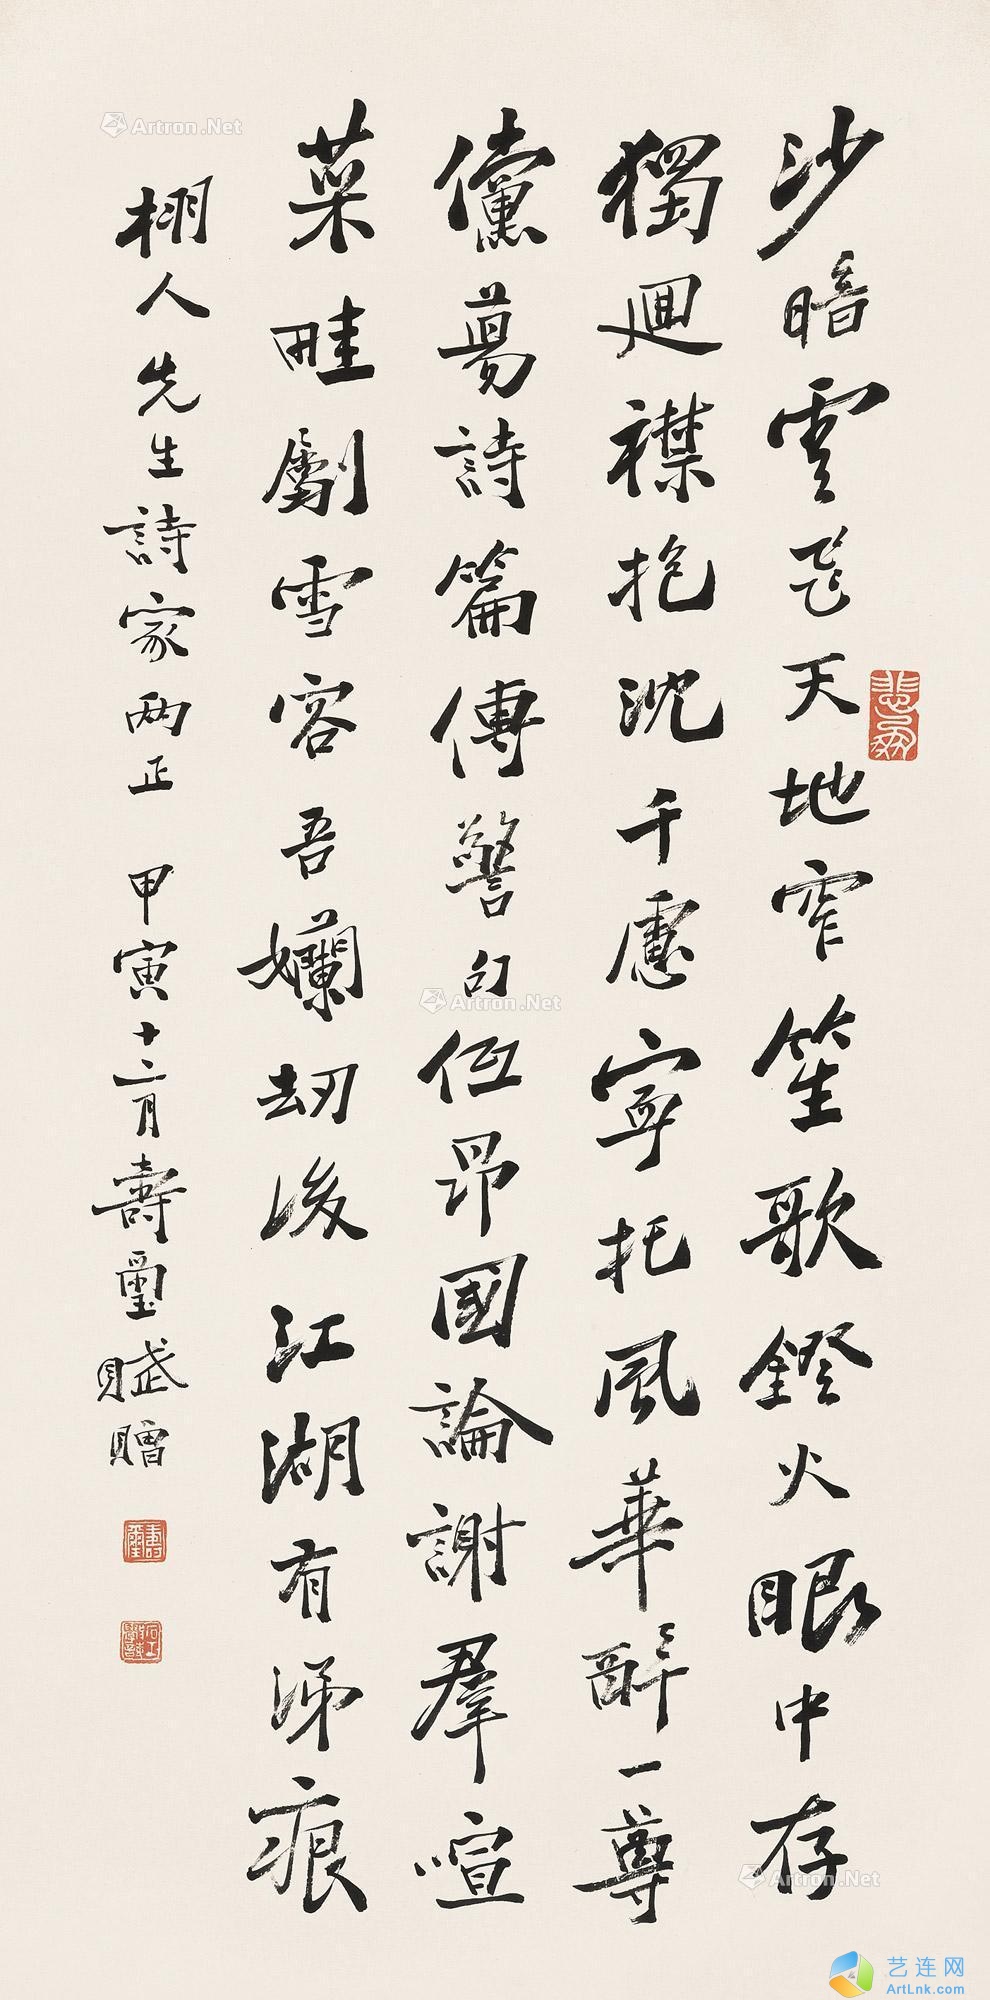 沙暗雲飛天地窄笙歌鐙火眼中存
獨迴襟抱沈千慮寧托風華醉一尊
儻蕩詩篇傳警句低昂國論謝羣喧
菜畦劚雪容吾嬾劫後江湖有涕痕
栩人先生詩家两正 甲寅十二月壽璽賦贈
壽璽
Artron.Net
Artron.Net
Artron.Net
艺连网
ArtLnk.com